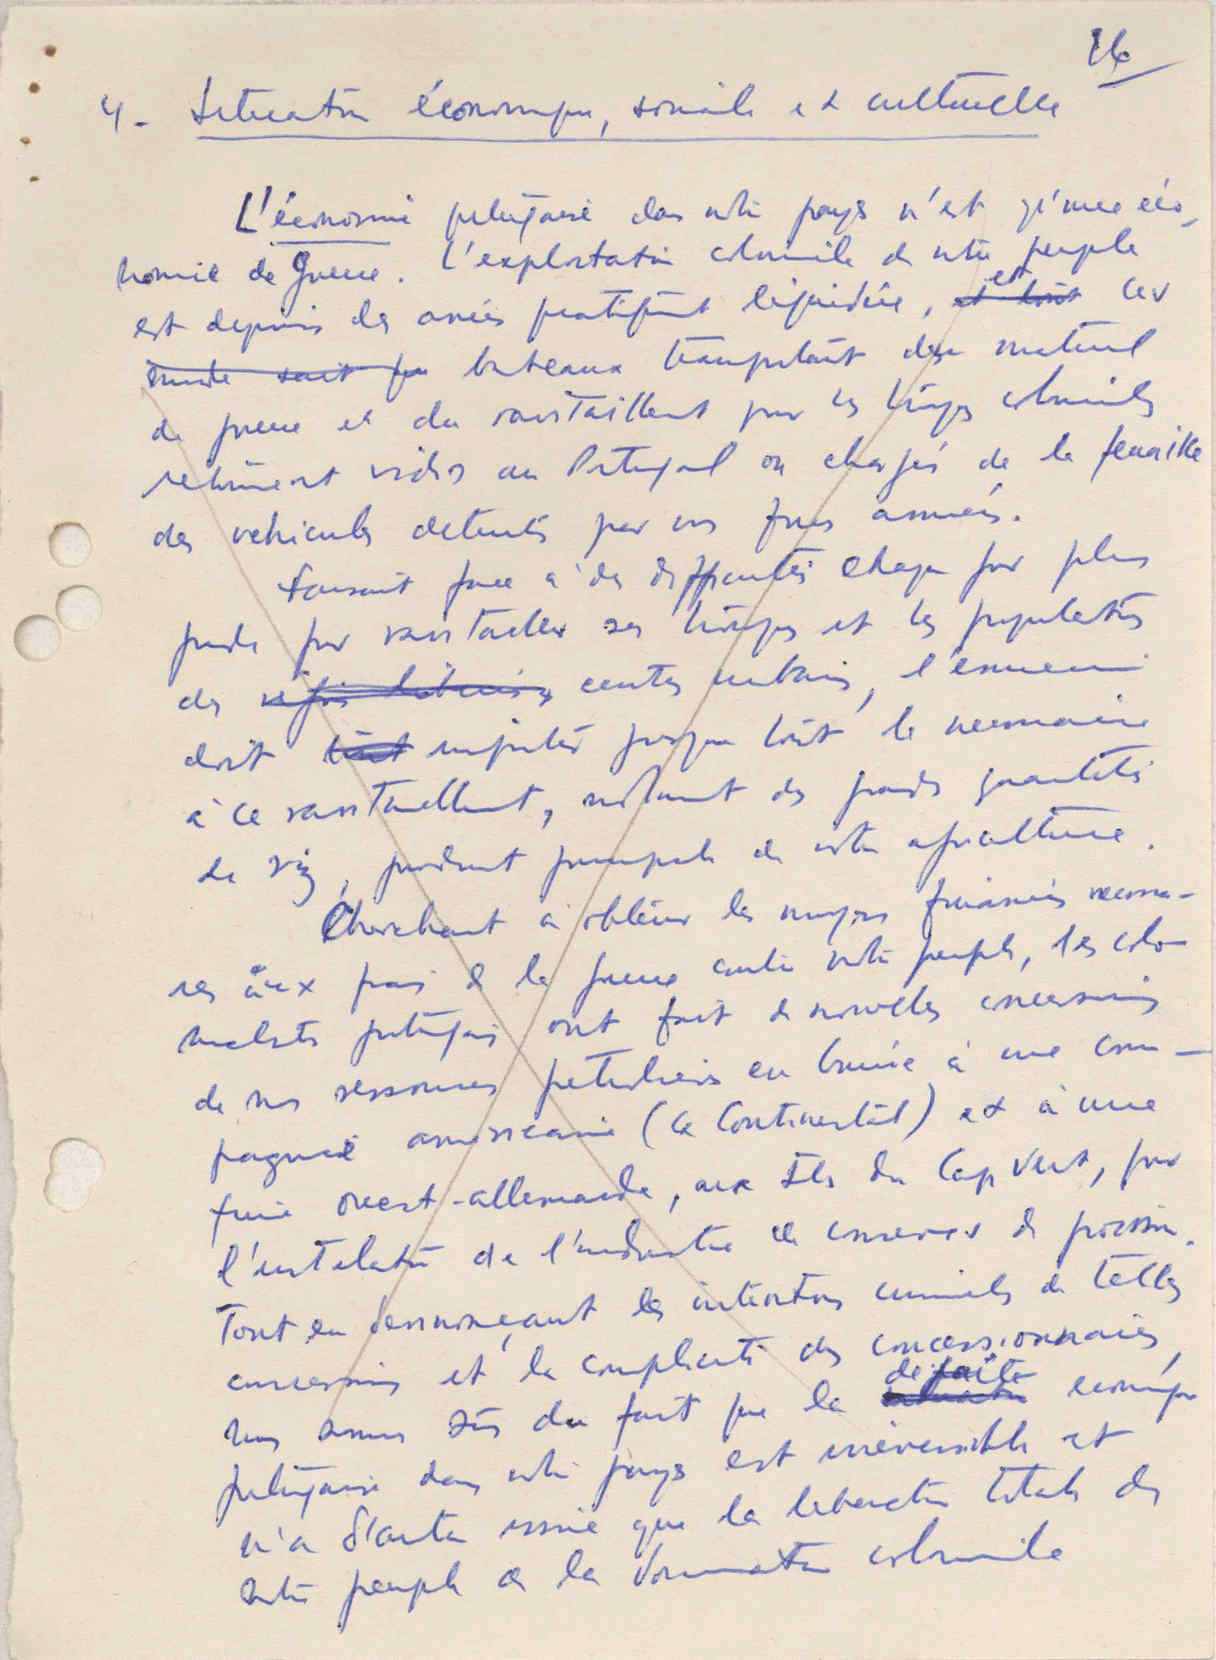 16
4 - Situation économique, sociale et culturelle
L'économie portugaise dans notre pays n'est qu'une éco-
nomie de guerre. L'exploitation coloniale de notre peuple
est depuis des années pratiquement liquidée, et les
bateaux transportant du matériel
de guerre et du ravitaillement pour les troupes coloniales
retournent vides au Portugal ou chargés de la ferraille
des vehicules détruits par nos forces armées.
Faisant face à des difficultés chaque jour plus
grandes pour ravitailler ses troupes et les populations
des centres urbains, l'ennemi
doit importer presque tout le necessaire
à ce ravitaillement, notamment des grandes quantités
de riz, produit principal de notre agriculture.
Cherchant à obtenir les moyens financiers necessai-
res aux frais de la guerre contre notre peuple, les colo-
nialistes portugais ont fait de nouvelles concessions
de nos ressources petrolières en Guinée à une com-
pagnie américaine (la Continental) et à une
firme ouest-allemande, aux Iles du Cap Vert, pour
l'installation de l'industrie de conserves de poisson.
Tout en dennonçant les intentions criminelles de telles
concessions et la complicité des concessionnaires,
nous sommes sûrs du fait que la défaite économique
portugaise dans notre pays est irréversible et
n'a d'autre issue que la libération totale de
notre peuple de la domination coloniale